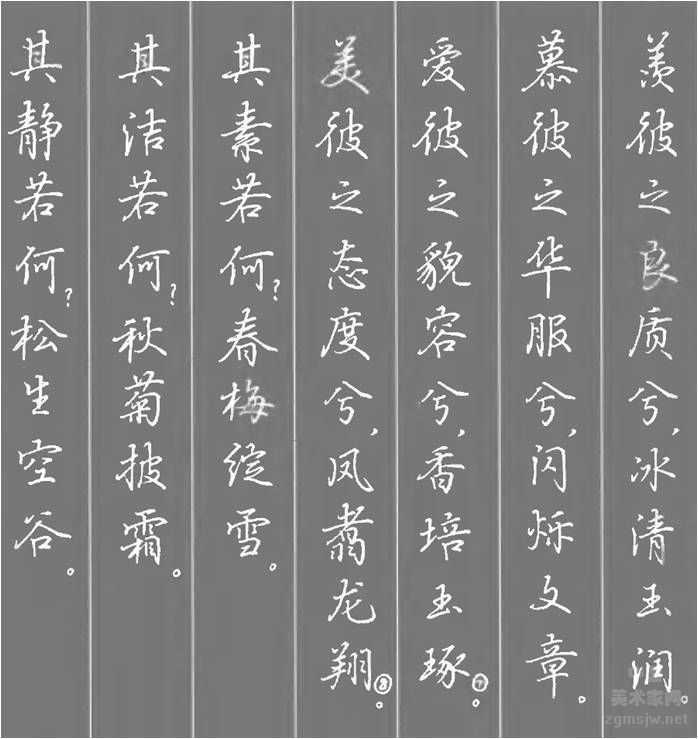 羡彼之良质兮，冰清玉润。
慕彼之华服兮，闪烁文章。
爱彼之貌容兮，香培玉琢⑦。
美彼之态度兮，凤翥龙翔⑧。
其素若何？春梅绽雪。
其洁若何？秋菊披霜。
其静若何？松生空谷。
美术家网
zgmsjw.net